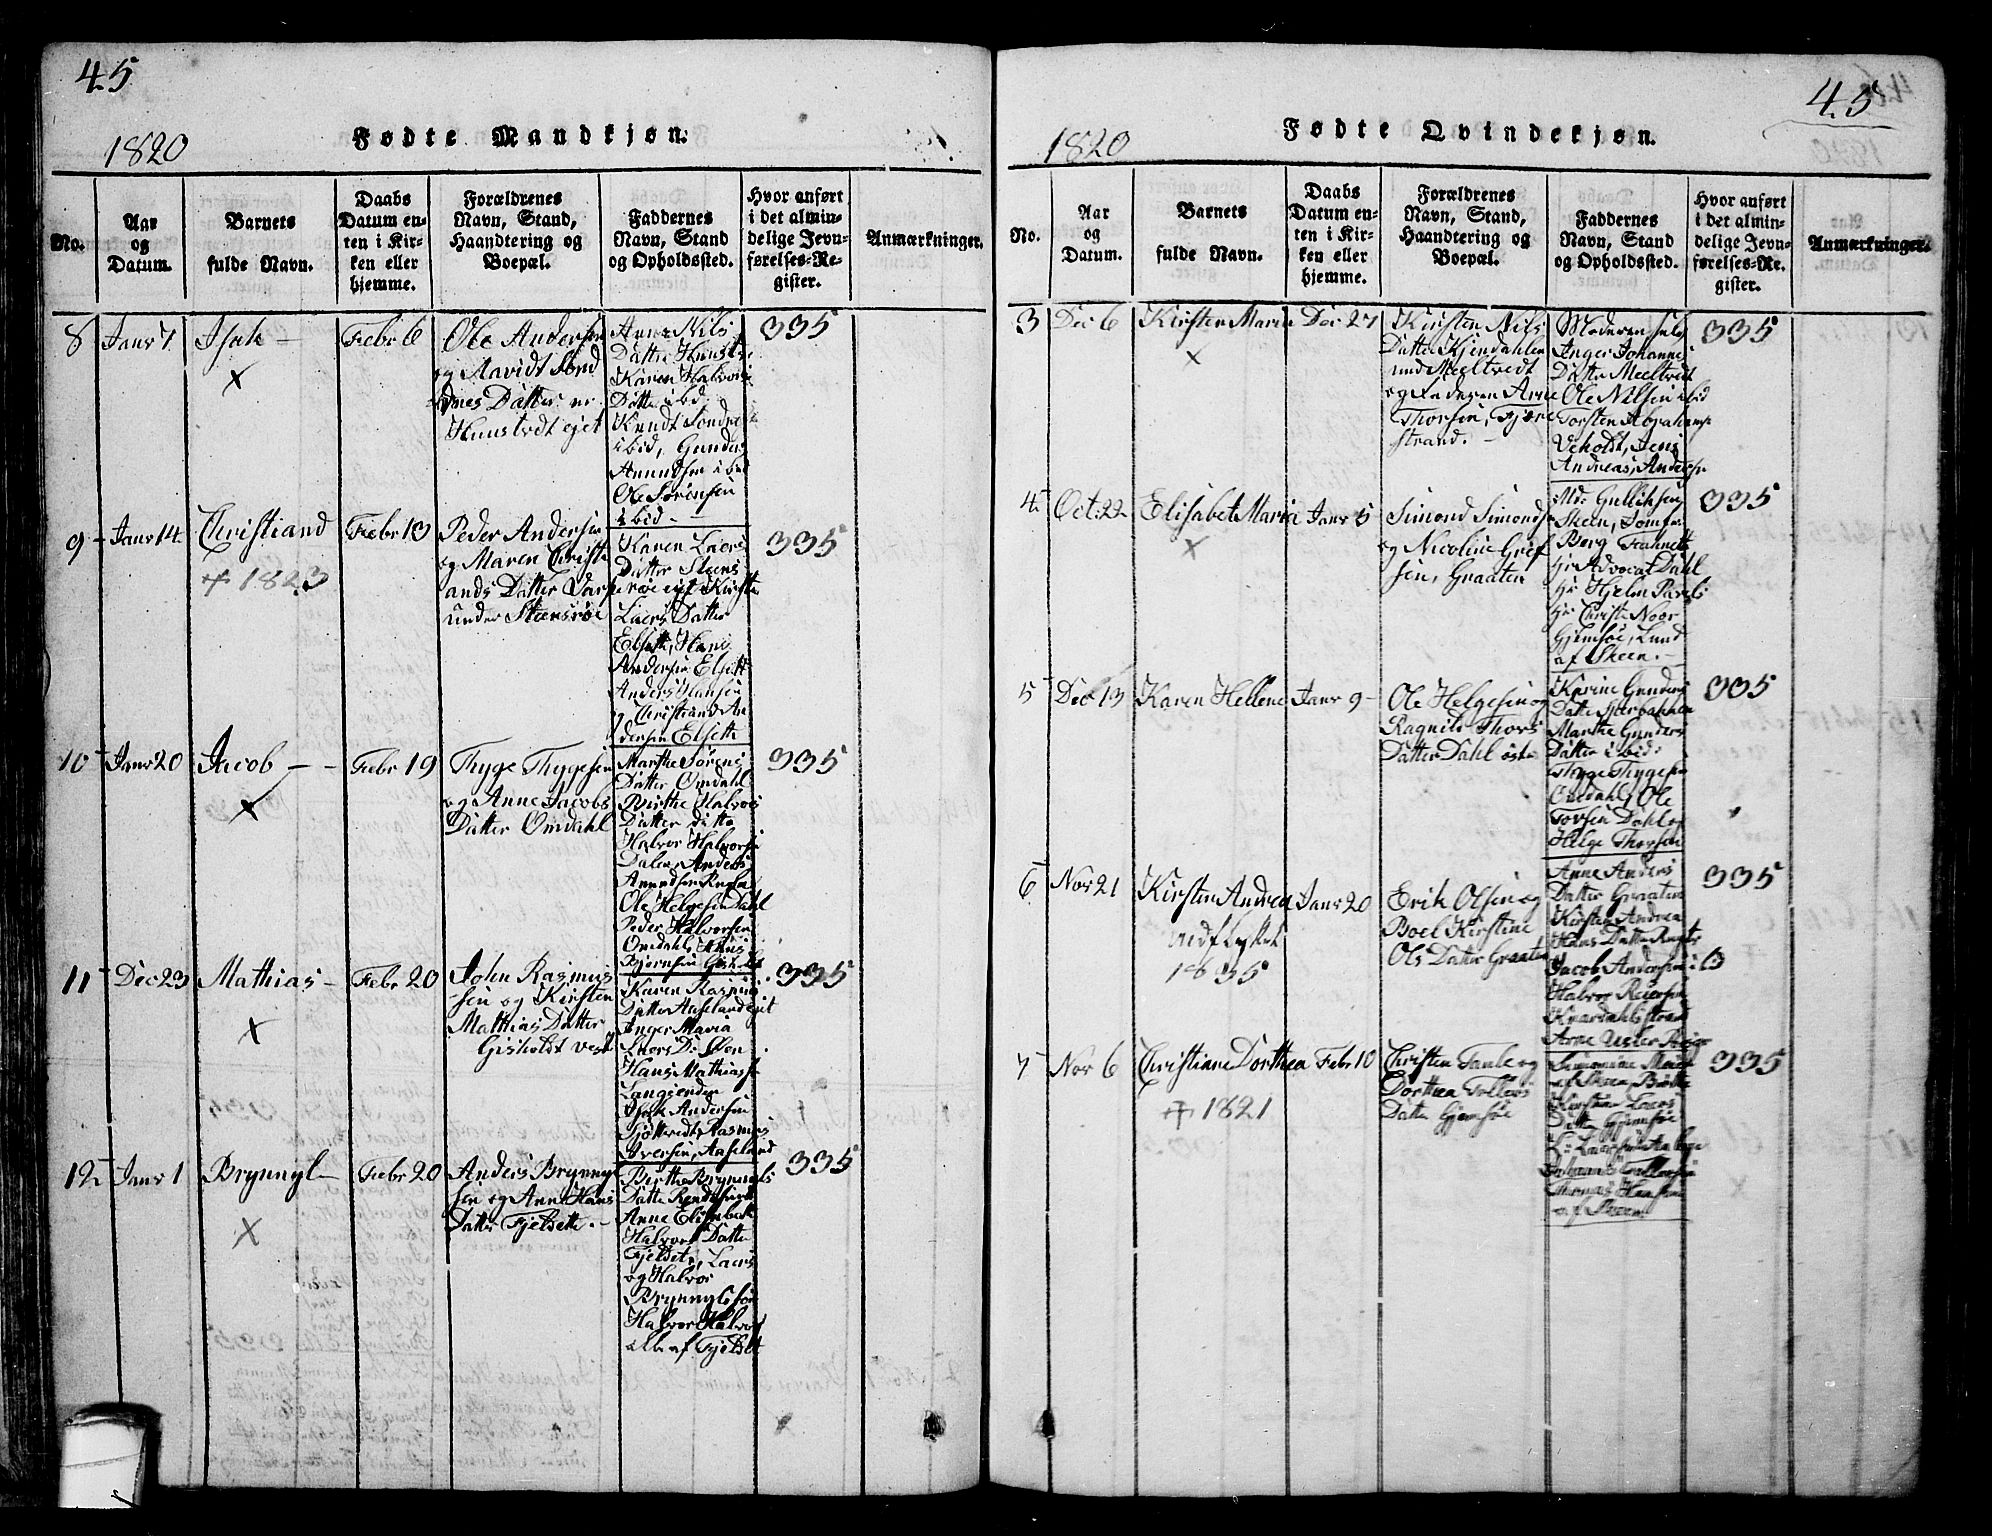 45
1820
Fødte Mandkjøn.
No.
Aar
og
Datum.
Barnets
fulde Navn.
Daabs
Datum en-
ten i Kir-
ken eller
hjemme.
Forældrenes
Navn, Stand,
Haandtering og
Boepæl.
Faddernes
Navn, Stand
og Opholdssted.
Hvor anført
i det almin-
delige Jevn-
førelses-Re-
gister.
Anmærkninger.
8
Janr 7
Isak
Febr 6
Ole Andersen
og
Datter
335
Karen Halvors
Datter ibid
ibid, Gunder
Ole Sørensen
ibid
9
Janr 14
Christiand
1823
Febr 13
Peder Andersen
og Maren Christi
ands Datter
under Steensrøe
335
Karen Laers
Datter
Laers Datter
Andersen Elsett
Anders Hansen
og Christiand An
dersen Elsett
10
Janr 20
Jacob
Febr 19
Thyge Thygesen
og Anne Jacobs
Datter Omdahl
335
Marthe Sørens
Datter Omdahl
Birthe Halvors
Datter ditto
Halvor Halvorsen
Anders
Ole Helgesen Dahl
Peder Halvorsen
Omdahl,
Bjørnsen
11
Dec 23
Mathias
Febr 20
John Rasmus
sen og Kirsten
Mathias Datter
Gisholdt vest
335
Karen Rasmus
Datter
Inger Maria
Hans Mathias
Langjender
Isak Andersen
Rasmus
Iversen, Aaseland
12
Janr 1
Brynnyl
Febr 20
Anders Brynnyl
sen og Anne Hans
Datter Fjeldsett
335
Berthe Brynnyls
Datter
Anne Elisabeth
Halvors Datter
Fjeldset, Laers
og Halvor
Brynnylsen
Halvor Halvors
alle af Fjeldset
45
1820
Fødte Qvindekjøn.
No.
Aar
og
Datum.
Barnets
fulde Navn.
Daabs
Datum en-
ten i Kir-
ken eller
hjemme.
Forældrenes
Navn, Stand,
Haandtering og
Boepæl.
Faddernes
Navn, Stand
og Opholdssted.
Hvor anført
i det almin-
delige Jevn-
førelses-Re-
gister.
Anmærkninger.
3
Dec 6
Kirsten Maria
Dec 27
Kirsten Nils
Datter Kjendahlen
und Meeltvedt
og Faderen Arne
Thorsen, Fjære
strand.
335
Moderen selv
Inger Johannes
Datter Meeltvedt
Ole Nilsen ibid
Torsten Abrahams
Jens
Andreas Anders
4
Oct. 22
Elisabet Maria
Janr 5
Simond Simonds
og Nicoline Gref
sen, Graaten
335
Md: Gulliksen
Skeen, Jomfru
Borg
Hr Advocat Dahl
Hr Hjelm
Hr Christ: Noer
Gjemsøe, Lund
af Skeen.
5
Dec 13
Karen Hellene
Janr 9
Ole Helgesen og
Ragnild Thors
Datter Dahl øste
335
Karine Gunders
Datter
Marthe Gunders
Datter ibid:
Thyge Thygesen
Omdahl, Ole
Torsen Dahl og
Helge Thorsen
6
Nov 21
Kirsten Andrea
udflyttet
1835
Janr 20
Erik Olsen og
Boel Kirstine
Ols Datter Graaten
335
Anne Anders
Datter Graaten
Kirsten Andrea
Hans Datter
Jacob Andersen ib
Halvor Reiersen
Knardahlsstrand
Arne
7
Nov 6
Christiane Dorthea
1821
Febr 10
Christen
og
Dorthea Tollevs
Datter Gjemsøe
335
af Skeen,
Kirstine Laers
Datter Gjemsøe
Thomas Hansen
af Skeen